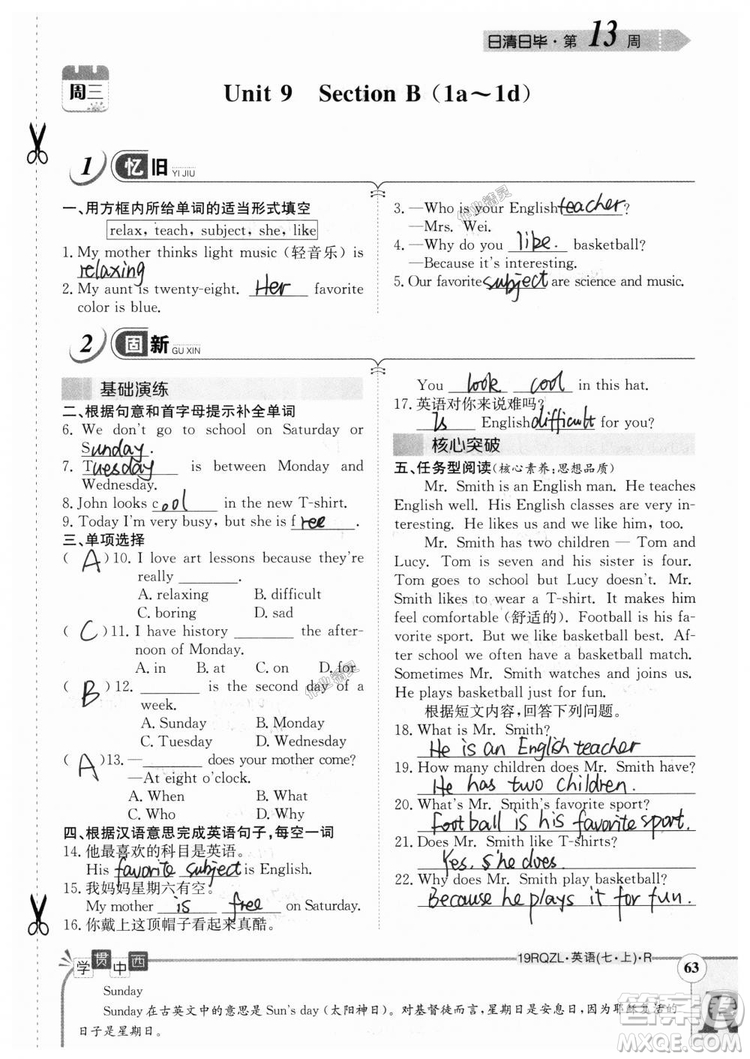 日清日毕·第13周
周三
Unit 9 Section B (1a～1d)
1 忆旧 YI JIU
一、用方框内所给单词的适当形式填空
relax, teach, subject, she, like
1. My mother thinks light music (轻音乐) is
relaxing
2. My aunt is twenty-eight. Her favorite
color is blue.
3. —Who is your English teacher?
—Mrs. Wei.
4. —Why do you like. basketball?
—Because it's interesting.
5. Our favorite subject are science and music.
2 固新 GU XIN
基础演练
二、根据句意和首字母提示补全单词
6. We don't go to school on Saturday or
Sunday.
7. Tuesday is between Monday and
Wednesday.
8. John looks cool in the new T-shirt.
9. Today I'm very busy, but she is free.
三、单项选择
( A )10. I love art lessons because they're
really ______.
A. relaxing B. difficult
C. boring D. sad
( C )11. I have history ______ the after-
noon of Monday.
A. in B. at C. on D. for
( B )12. ______ is the second day of a
week.
A. Sunday B. Monday
C. Tuesday D. Wednesday
( A )13. —______ does your mother come?
—At eight o'clock.
A. When B. What
C. Who D. Why
四、根据汉语意思完成英语句子,每空一词
14. 他最喜欢的科目是英语。
His favorite subject is English.
15. 我妈妈星期六有空。
My mother is free on Saturday.
16. 你戴上这顶帽子看起来真酷。
You look cool in this hat.
17. 英语对你来说难吗?
Is English difficult for you?
核心突破
五、任务型阅读(核心素养:思想品质)
Mr. Smith is an English man. He teaches
English well. His English classes are very in-
teresting. He likes us and we like him, too.
Mr. Smith has two children — Tom and
Lucy. Tom is seven and his sister is four.
Tom goes to school but Lucy doesn't. Mr.
Smith likes to wear a T-shirt. It makes him
feel comfortable (舒适的). Football is his fa-
vorite sport. But we like basketball best. Af-
ter school, we often play basketball.
Sometimes Mr. Smith watches and joins us.
He plays basketball just for fun.
根据短文内容,回答下列问题。
18. What is Mr. Smith?
He is an English teacher
19. How many children does Mr. Smith have?
He has two children.
20. What's Mr. Smith's favorite sport?
Football is his favorite sport.
21. Does Mr. Smith like T-shirts?
Yes. she does.
22. Why does Mr. Smith play basketball?
Because he plays it for fun.
19RQZL·英语(七·上)·R 63
学贯中西
Sunday
Sunday 在古英文中的意思是 Sun's day (太阳神日)。对基督徒而言,星期日是安息日,因为耶稣复活的
日子是星期日。
MXQE.COM